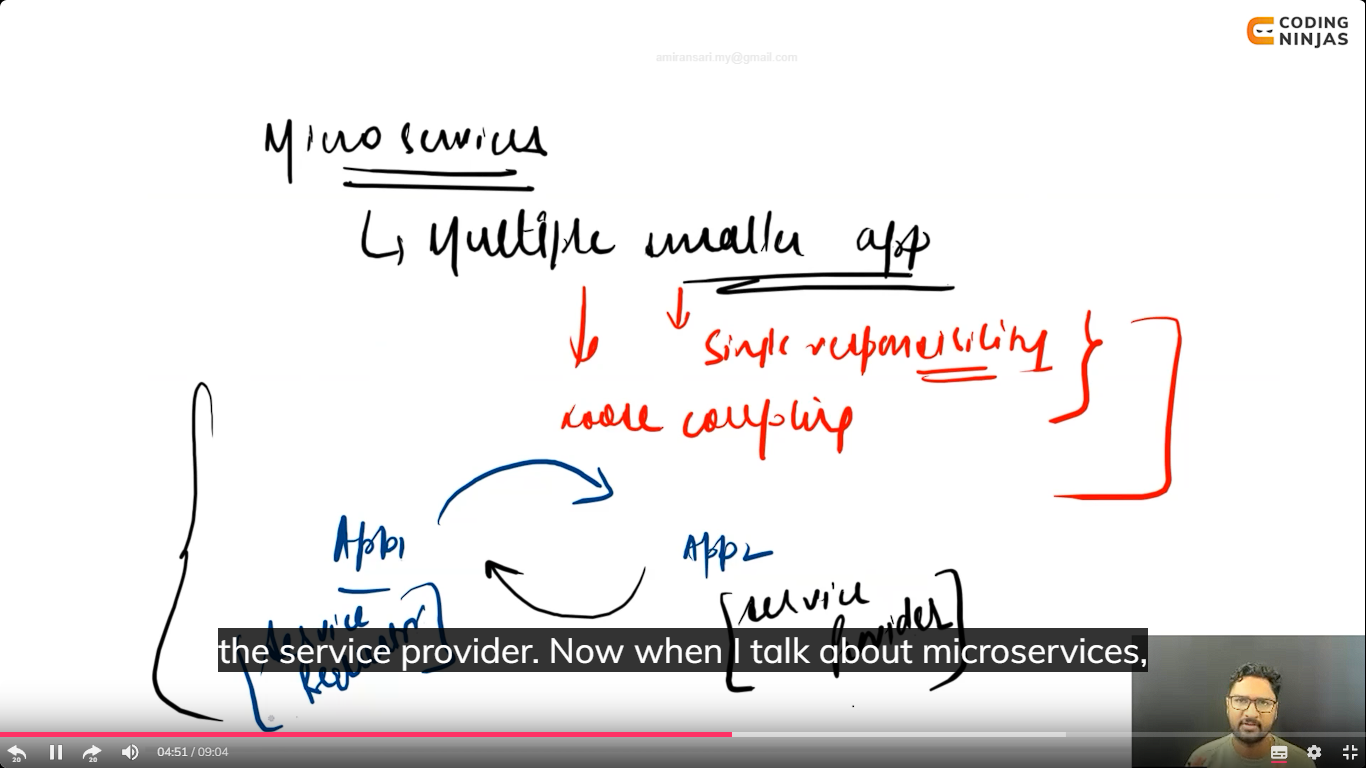 CODING
NINJAS
amiransari.my@gmail.com
Microservices
↳ Multiple smaller app
Single responsibility
loose coupling
App1
App2
[service
Requestor]
[service
Provider]
the service provider. Now when I talk about microservices,
20
20
04:51 / 09:04